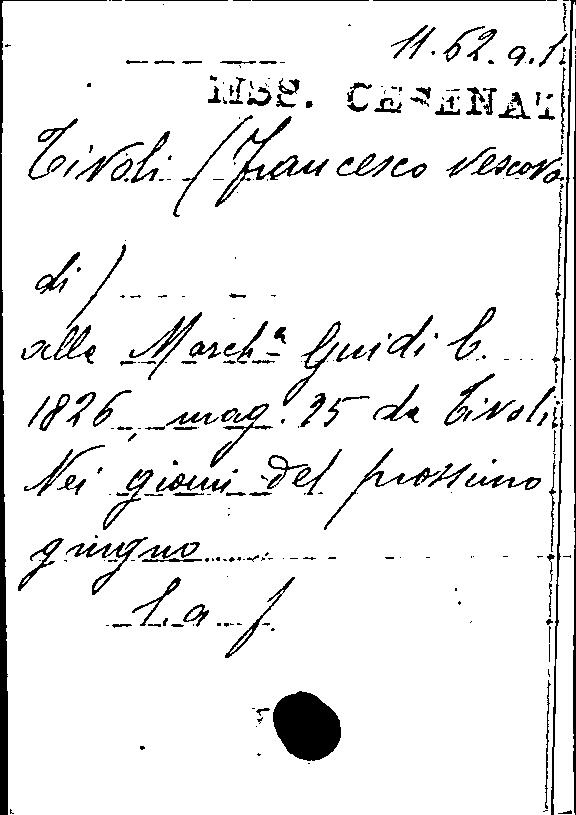 11.62.a.1.
MSS. CESENAT
Tivoli (Francesco vescovo
di)
alla March.ª Guidi C.
1826, mag. 25 da Tivoli
Nei giorni del prossimo
giugno.....
L. a f.